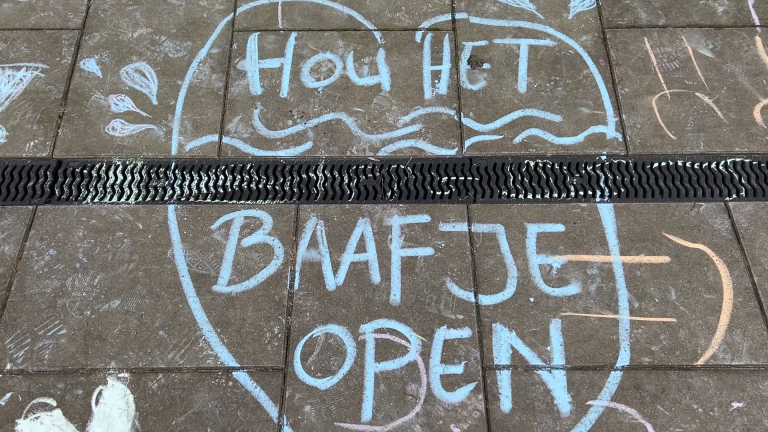 HOU HET
BAAFJE
OPEN